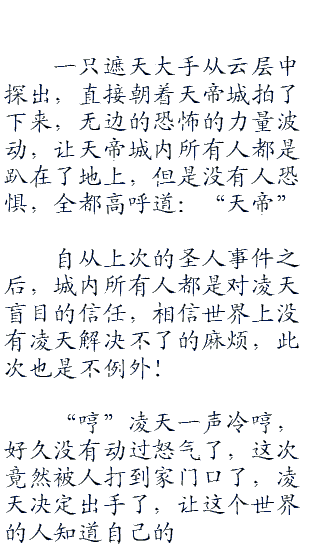 一只遮天大手从云层中
探出，直接朝着天帝城拍了
下来，无边的恐怖的力量波
动，让天帝城内所有人都是
趴在了地上，但是没有人恐
惧，全都高呼道：“天帝”
自从上次的圣人事件之
后，城内所有人都是对凌天
盲目的信任，相信世界上没
有凌天解决不了的麻烦，此
次也是不例外！
“哼”凌天一声冷哼，
好久没有动过怒气了，这次
竟然被人打到家门口了，凌
天决定出手了，让这个世界
的人知道自己的